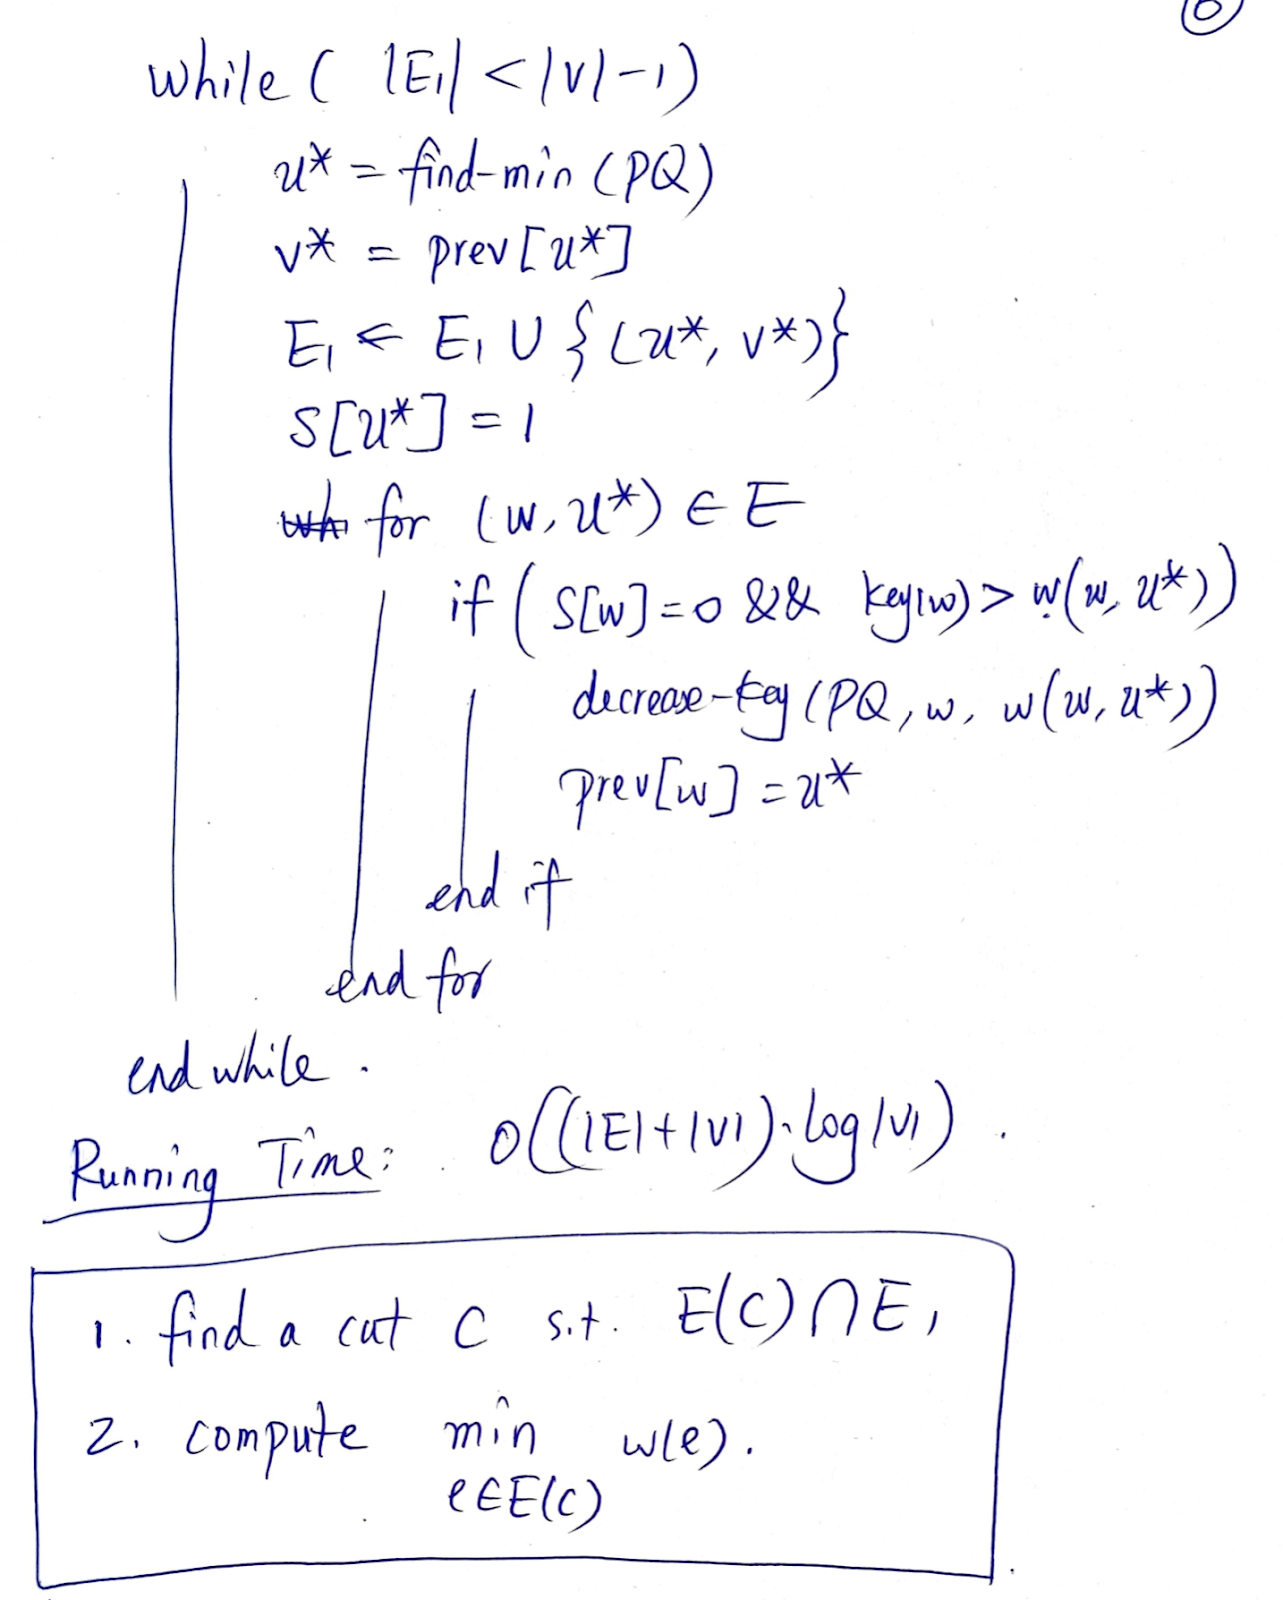 6
while ( |E₁| < |V| - 1 )
u* = find-min (PQ)
v* = prev[u*]
E₁ ← E₁ ∪ {(u*, v*)}
S[u*] = 1
for (w, u*) ∈ E
if ( S[w] = 0 && key(w) > w(w, u*))
decrease-key (PQ, w, w(w, u*))
prev[w] = u*
end if
end for
end while .
Running Time: O((|E|+|V|)·log|V|) .
1. find a cut C s.t. E(C) ∩ E₁
2. compute min w(e).
e∈E(C)